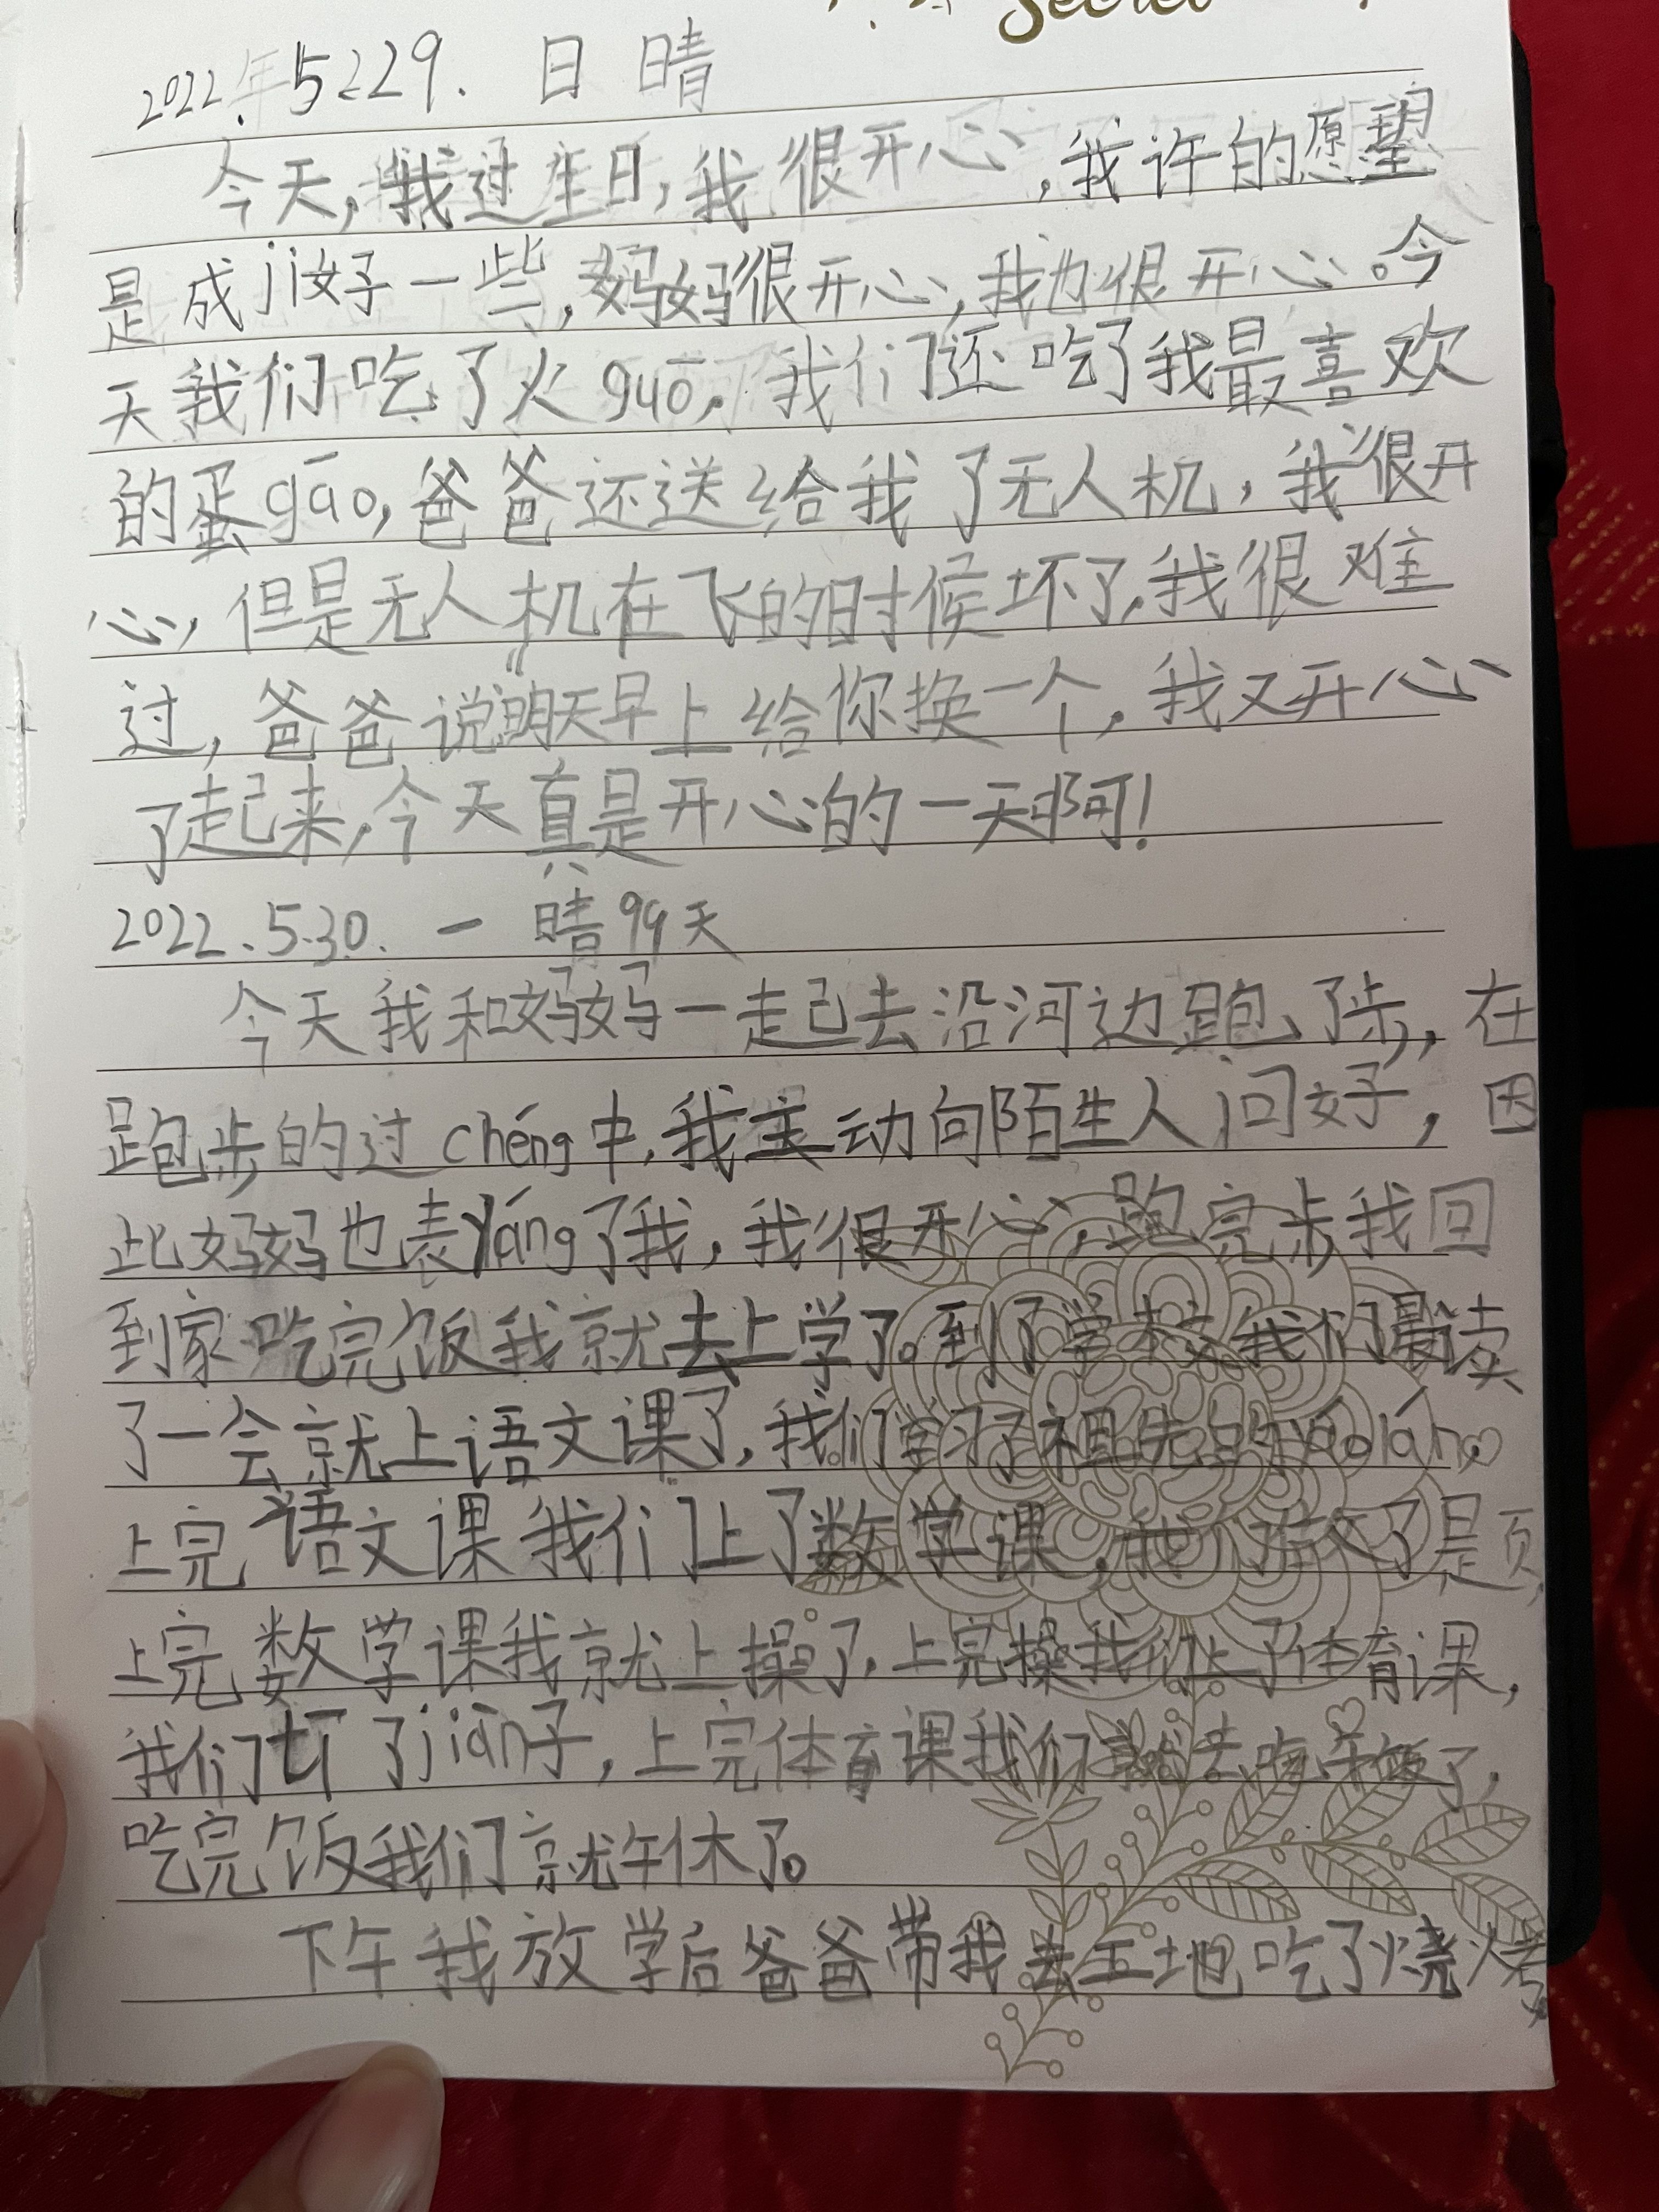 Secret
2022.年5.29. 日 晴
今天,我过生日,我很开心,我许的愿望
是成jì好一些,妈妈很开心,我也很开心。今
天我们吃了火guō,我们还吃了我最喜欢
的蛋gāo,爸爸还送给我了无人机,我很开
心,但是无人机在飞的时候坏了,我很难
过,爸爸说"明天早上给你换一个,我又开心
了起来,今天真是开心的一天啊!
2022.5.30. 一 晴 99天
今天我和妈妈一起去沿河边跑了步,在
跑步的过chéng中,我主动向陌生人问好,因
此妈妈也表yáng了我,我很开心,跑完步我回
到家吃完饭我就去上学了。到了学校我们读
了一会就上语文课了,我们学习了祖先的yáolán。
上完语文课我们上了数学课,我们做了题,
上完数学课我就上操了,上完操我们上了体育课,
我们tī了jiàn子,上完体育课我们就去吃午饭了,
吃完饭我们就午休了。
下午我放学后爸爸带我去工地吃了烧烤